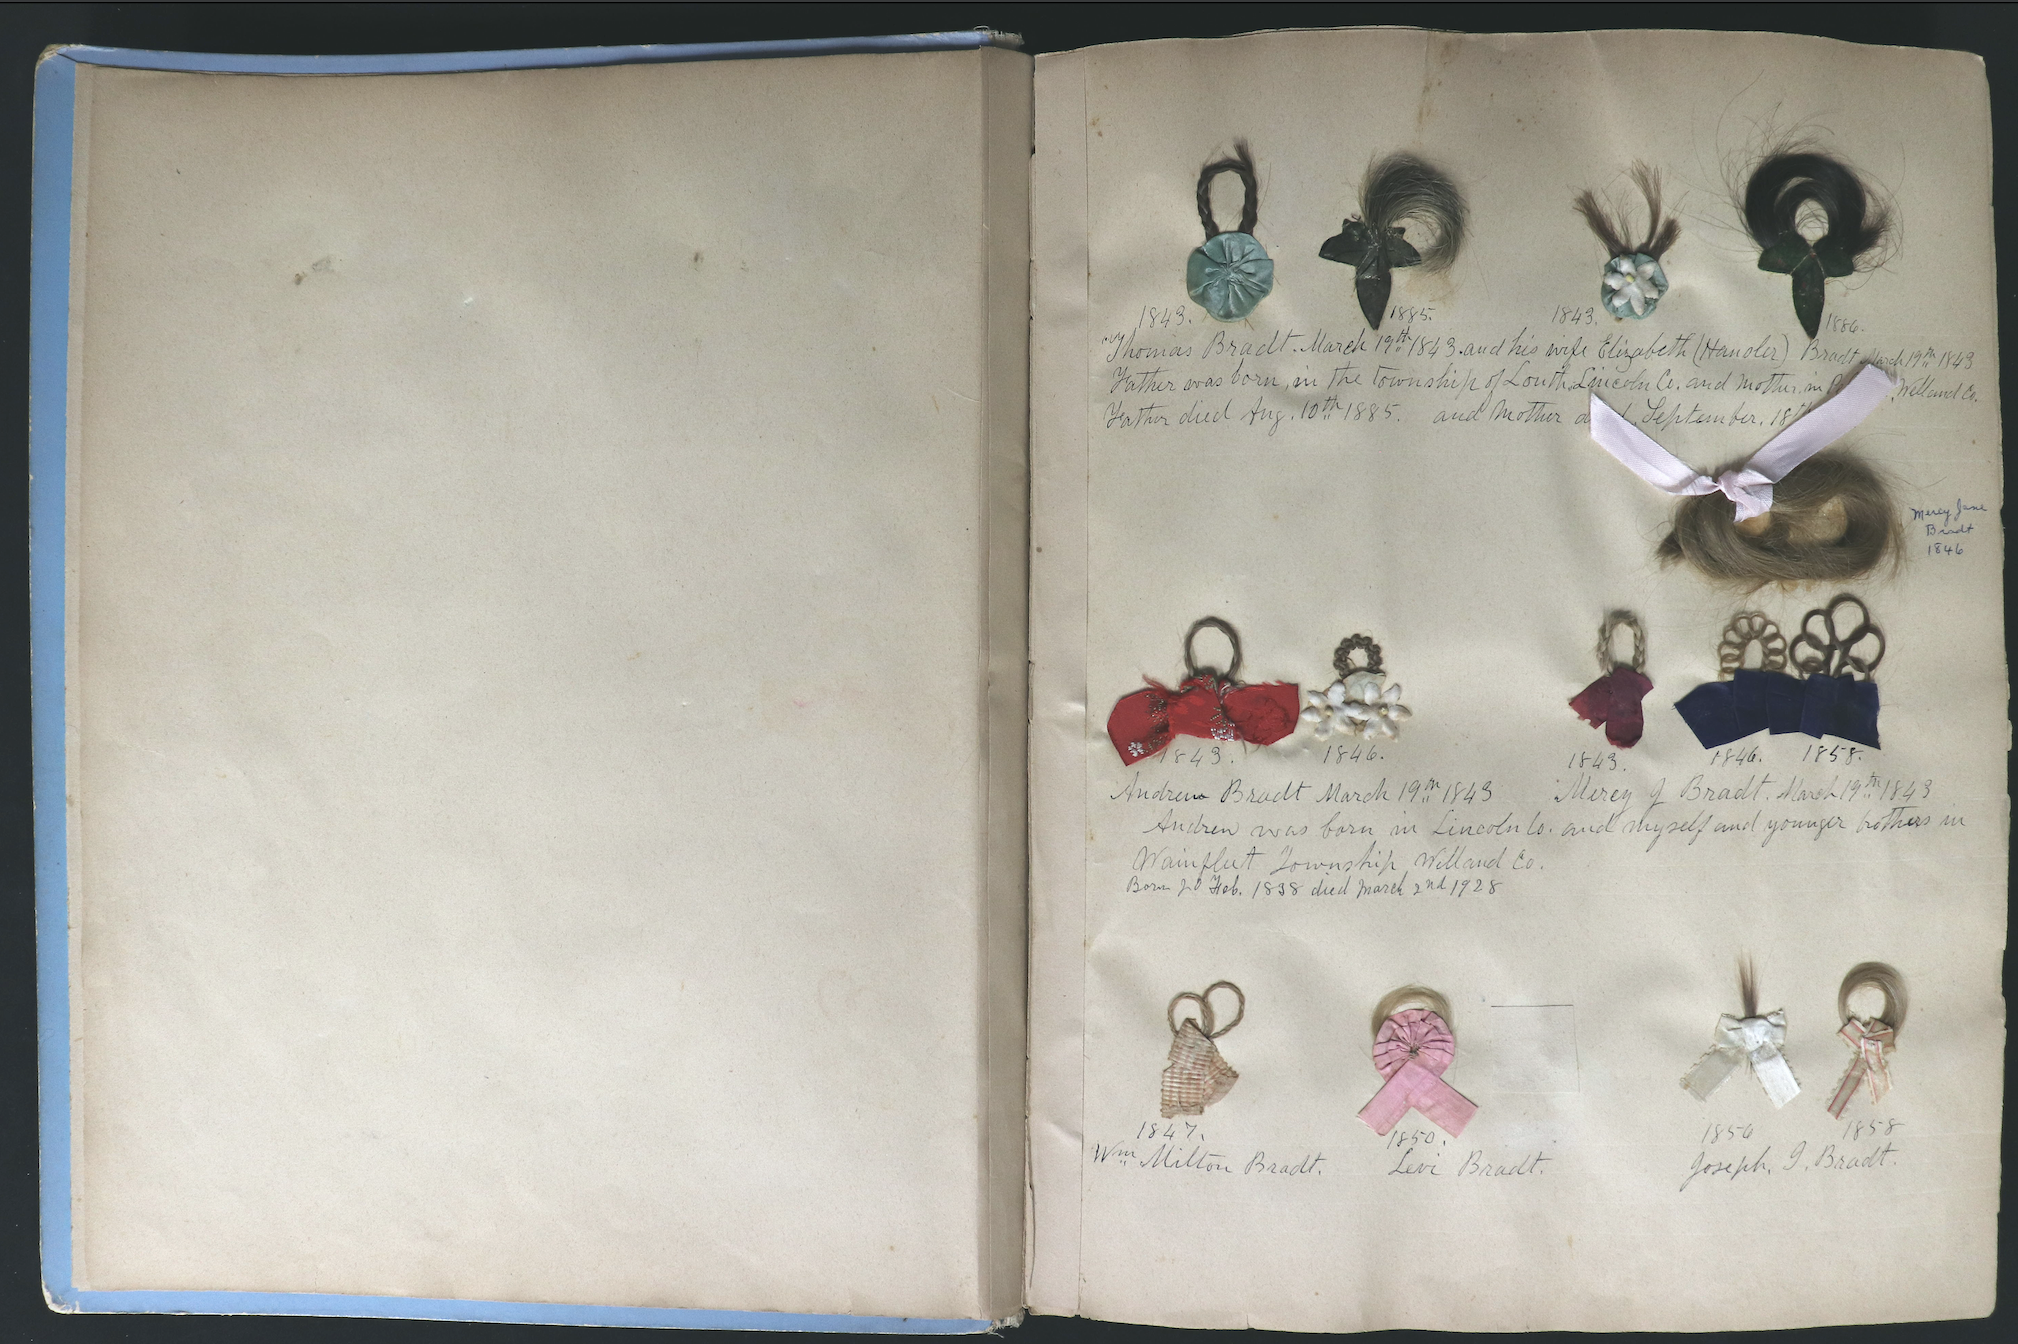 1843. 1885. 1843. 1886.
Thomas Bradt. March 19th 1843. and his wife Elizabeth (Hansler) Bradt March 19th 1843
Father was born, in the township of Louth, Lincoln Co. and mother, in Welland Co.
Father died Aug. 10th 1885. and Mother September. 18th
Mercy Jane
Bradt
1846
1843. 1846. 1843. 1846. 1858.
Andrew Bradt March 19th 1843 Mercy J Bradt. March 19th 1843
Andrew was born in Lincoln Co. and myself and younger brothers in
Wainfleet Township Welland Co.
Born Feb. 1838 died March 2nd 1928
1847. 1850. 1858
Wm Milton Bradt. Levi Bradt. Joseph. I. Bradt.